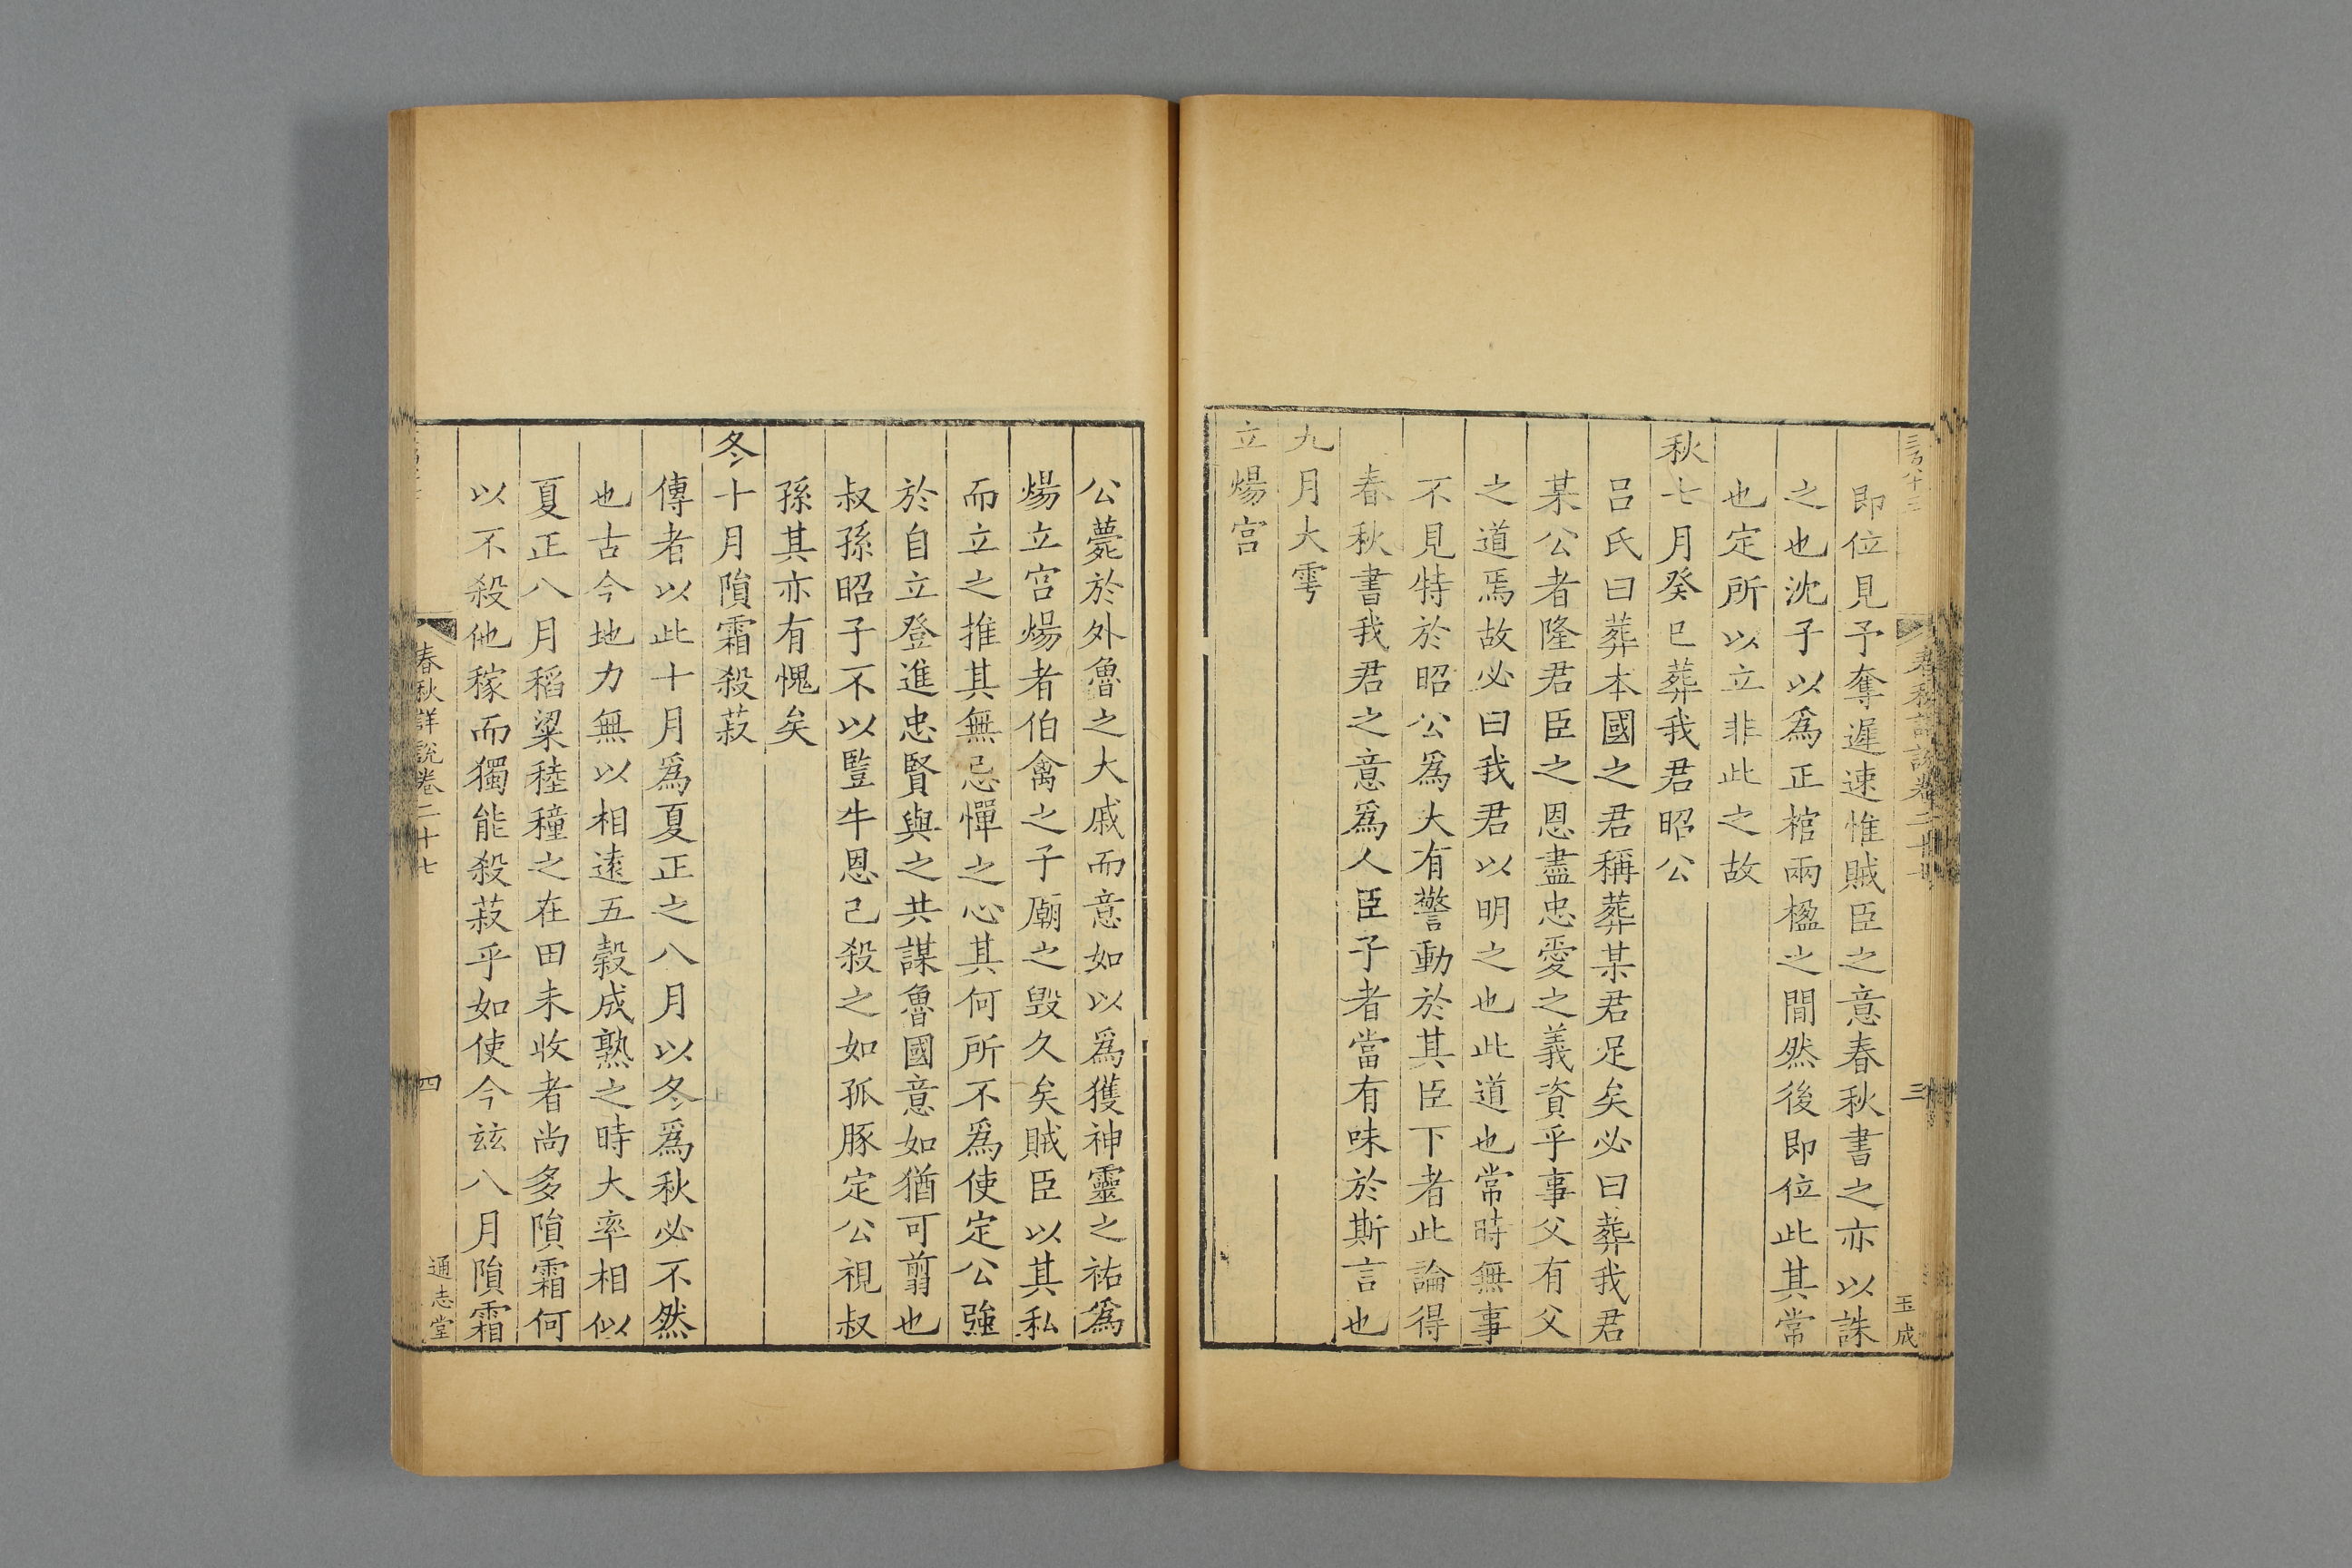 春秋詳說卷二十七
三
玉成
即位見予奪遲速惟賊臣之意春秋書之亦以誅
之也沈子以爲正棺兩楹之間然後即位此其常
也定所以立非此之故
秋七月癸巳葬我君昭公
呂氏曰葬本國之君稱葬某君足矣必曰葬我君
某公者隆君臣之恩盡忠愛之義資乎事父有父
之道焉故必曰我君以明之也此道也常時無事
不見特於昭公爲大有警動於其臣下者此論得
春秋書我君之意爲人臣子者當有味於斯言也
九月大雩
立煬宮
公薨於外魯之大戚而意如以爲獲神靈之祐爲
煬立宮煬者伯禽之子廟之毀久矣賊臣以其私
而立之推其無忌憚之心其何所不爲使定公強
於自立登進忠賢與之共謀魯國意如猶可翦也
叔孫昭子不以豎牛恩己殺之如孤豚定公視叔
孫其亦有愧矣
冬十月隕霜殺菽
傳者以此十月爲夏正之八月以冬爲秋必不然
也古今地力無以相遠五穀成熟之時大率相似
夏正八月稻粱稑穜之在田未收者尚多隕霜何
以不殺他稼而獨能殺菽乎如使今玆八月隕霜
春秋詳說卷二十七
四
通志堂